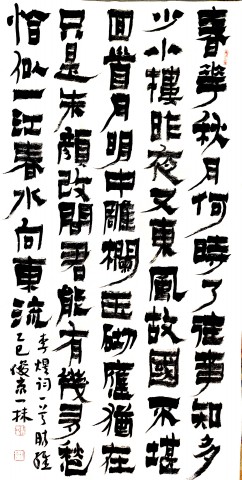 春華秋月何時了往事知多
少小樓昨夜又東風故國不堪
回首月明中雕欄玉砌應猶在
只是朱顏改問君能有幾多愁
恰似一江春水向東流
李煜詞一首
乙巳